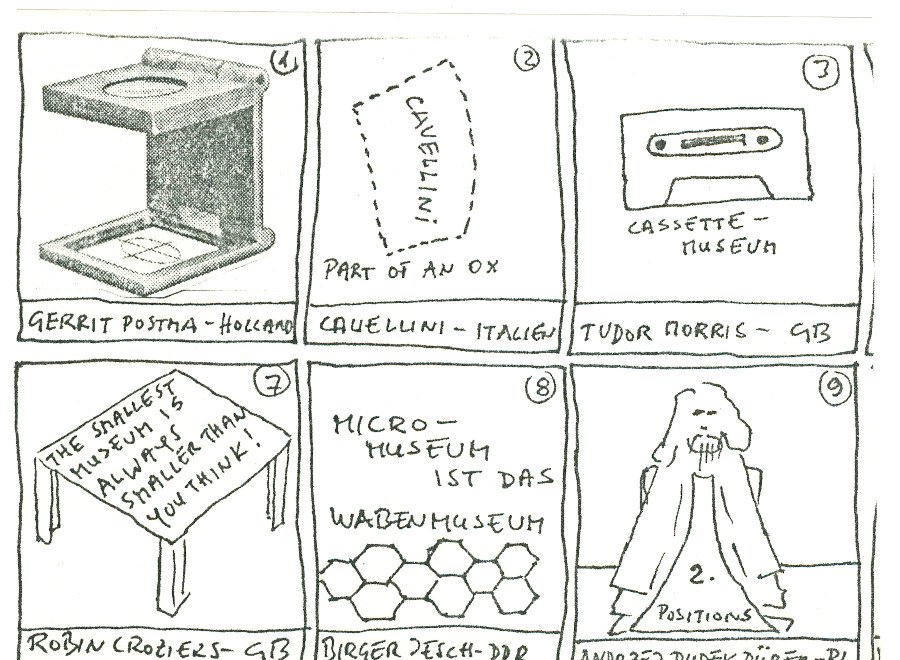 1
GERRIT POSTMA - HOLLAND
2
CAVELLINI
PART OF AN OX
CAVELLINI - ITALIEN
3
CASSETTE-
MUSEUM
TUDOR MORRIS - GB
7
THE SMALLEST
MUSEUM IS
ALWAYS
SMALLER THAN
YOU THINK!
ROBIN CROZIERS - GB
8
MICRO-
MUSEUM
IST DAS
WABENMUSEUM
BIRGER JESCH - DDR
9
2.
POSITIONS
ANDRZEJ DUDEK DÜRER - PL